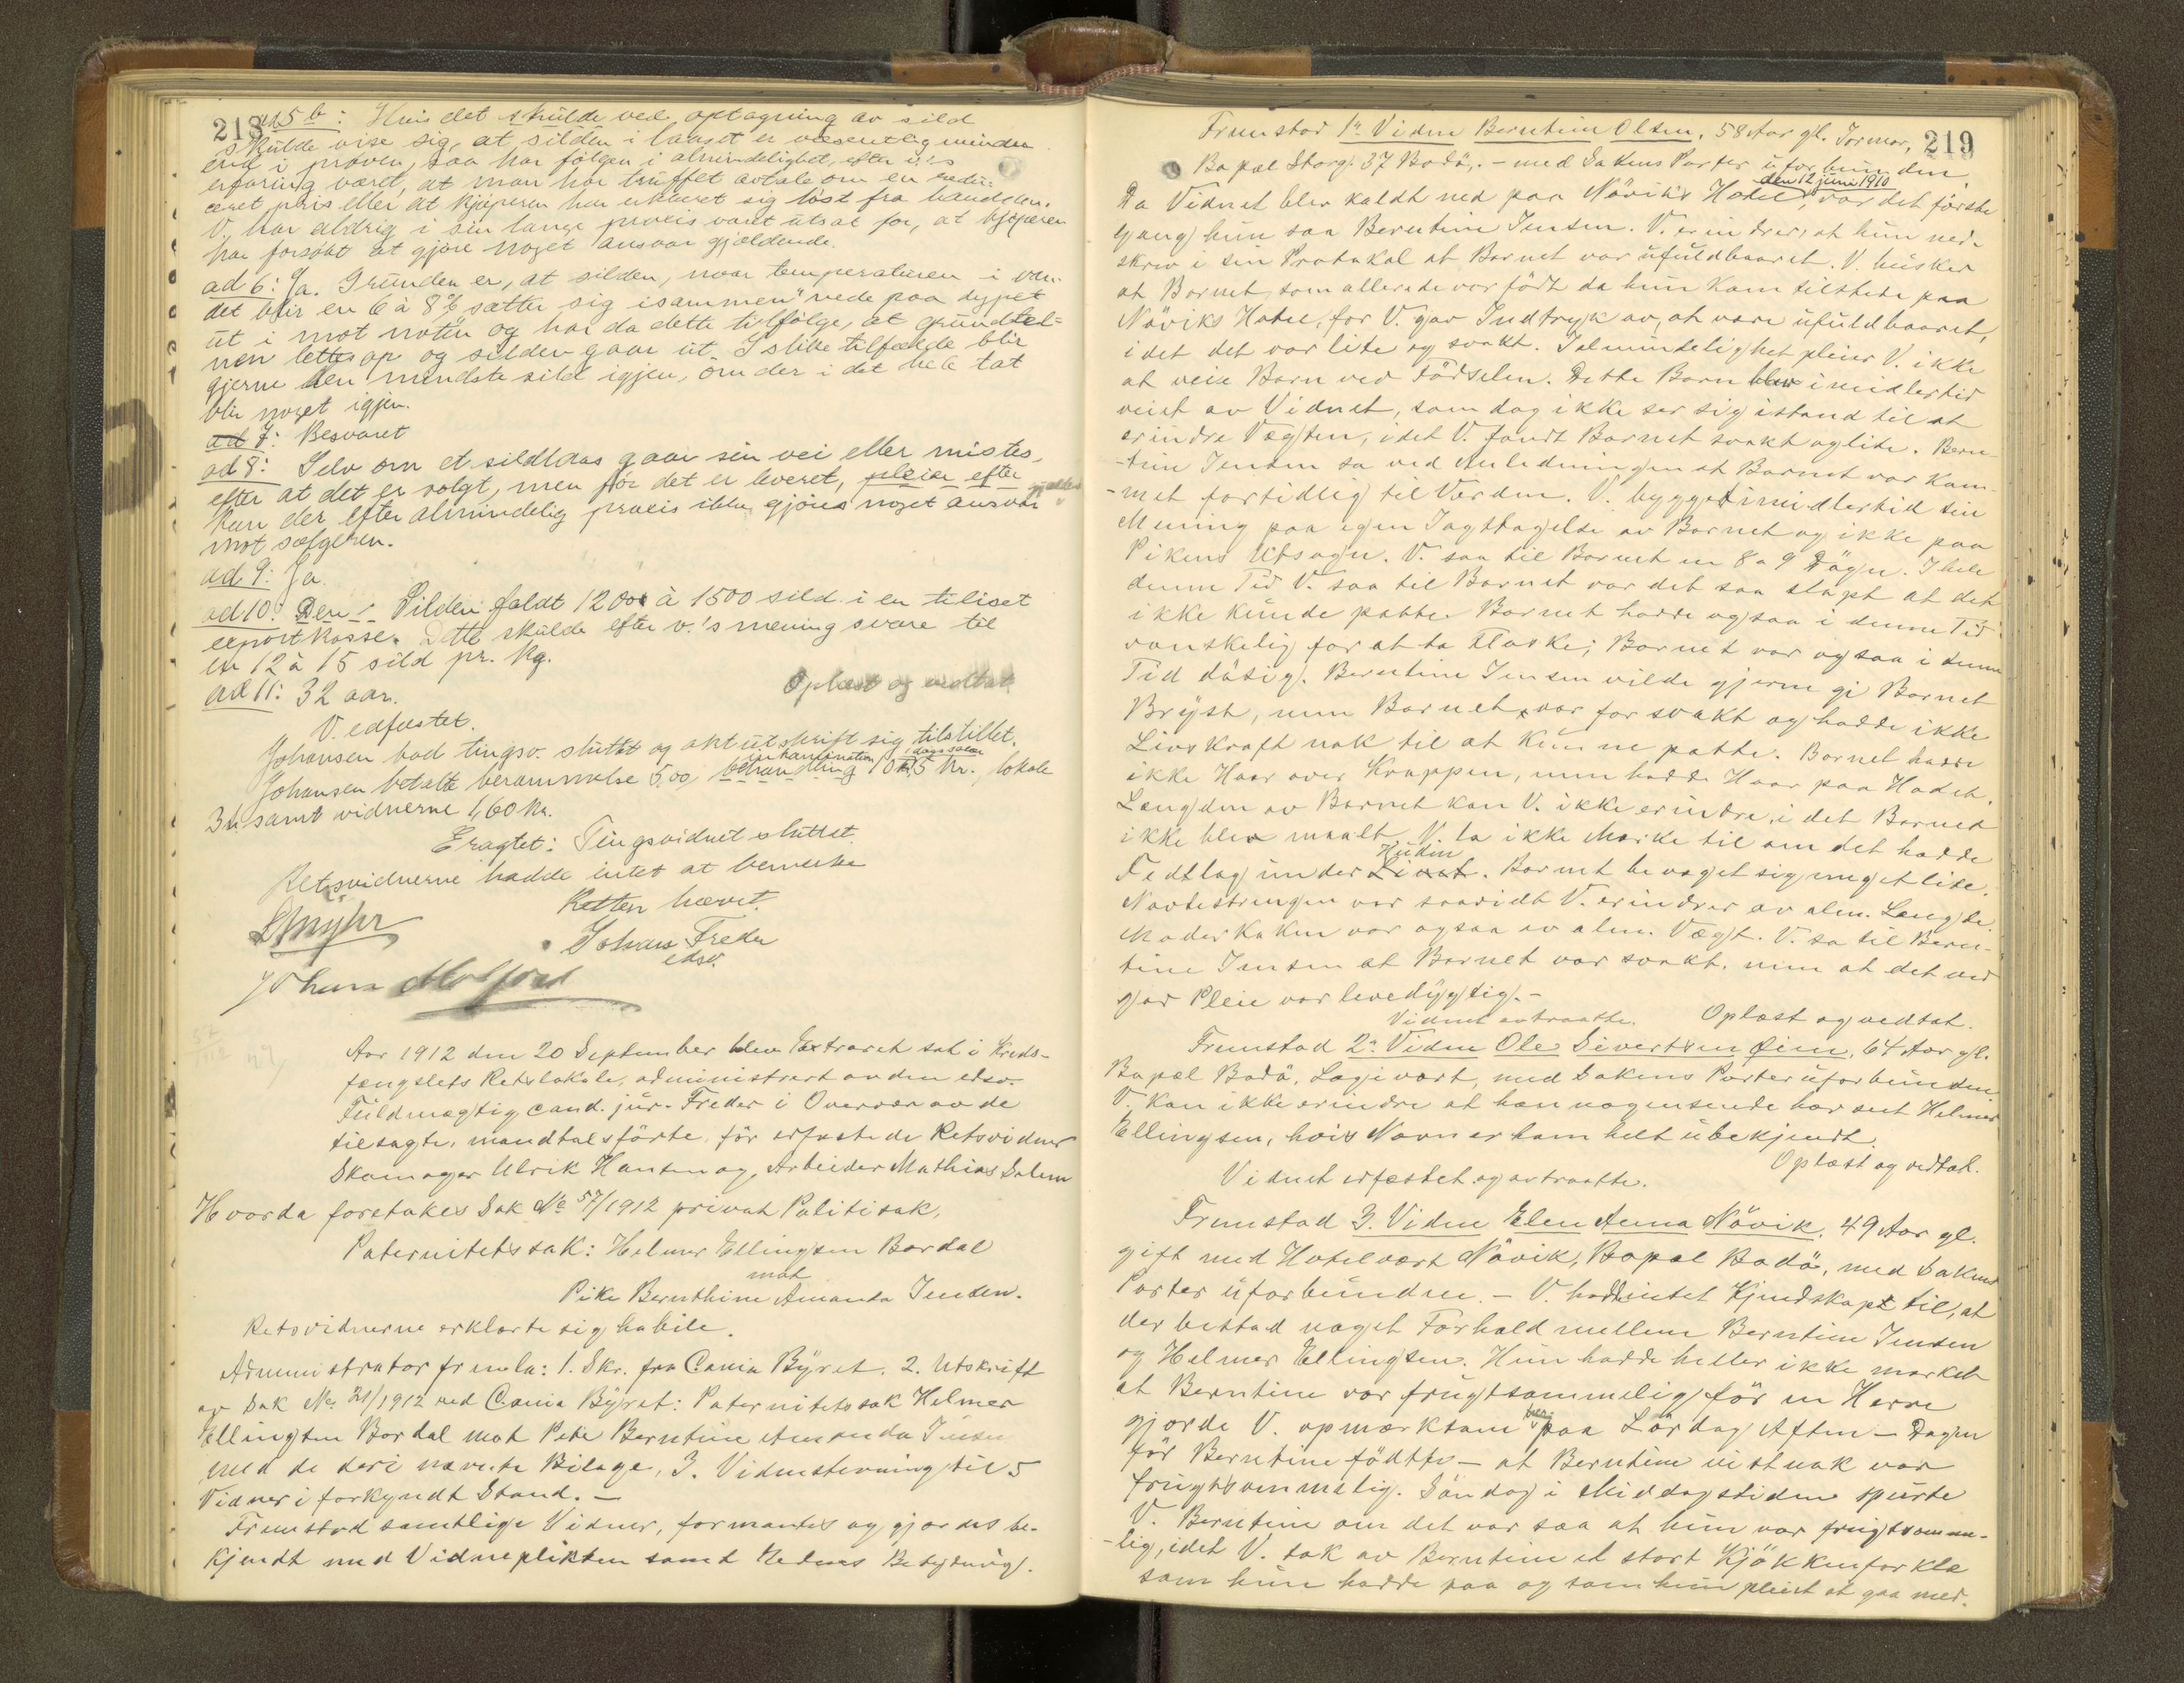 218
ad 5 b: Hvis det skulde ved optagning av sild
skulde vise sig, at silden i laaset er væsentlig mindre
end i prøven, saa har følgen i almindelighet, efter v.'s
erfaring været, at man har truffet avtale om en redu-
ceret pris eller at kjøperen har erklæret sig løst fra handelen.
V. har aldrig i sin lange praxis været utsat for, at kjøperen
har forsøkt at gjøre noget ansvar gjældende.
ad 6: Ja. Grunden er, at silden, naar temperaturen i van-
det blir en 6 à 8% sætter sig isammen" nede paa dypet
ut i mot noten og har da dette tilfølge, at grundtel-
nen lettes op og silden gaar ut. I slike tilfælde blir
gjerne den mindste sild igjen, om der i det hele tat
blir noget igjen.
ad 7: Besvaret
ad 8: Selv om et sildlaas gaar sin vei eller mistes,
efter at det er solgt, men før det er leveret, pleier efter
kan der efter almindelig praxis ikke gjøres noget ansvar gjældende
mot sælgeren.
ad 9: Ja.
ad 10: Den Silden faldt 1200 à 1500 sild i en tiliset
exportkasse. Dette skulde efter v.'s mening svare til
en 12 à 15 sild pr. kg.
ad 11: 32 aar.
Oplæst og vedtat
V. edfæstet.
Johansen bad tingsv. sluttet og aktutskrift sig tilstillet.
Johansen betalte berammelse 5,00, behandling 10 kr., lokale
3 kr samt vidnerne 1,60 kr.
Eragtet: Tingsvidnet sluttet.
Retsvidnerne hadde intet at bemerke
Retten hævet.
Johans Freder
edsv.
Aar 1912 den 20 September blev Extraret sat i Kreds-
fængslets Retslokale, administrert av den edsv.
Fuldmægtig cand. jur. Freder i Overvær av de
tilsagte, mandtalsförte, för edfæstede Retsvidner
Skomager Ulrik Hansen og Arbeider Mathias Salem
Hvorda foretokes Sak No 57/1912 privat Politisak,
Paternitetssak: Helmer Ellingsen Bardal
mot
Pike Bernthine Amanda Jensen.
Retsvidnerne erklærte sig habile.
Administrator fremla: 1. Skr. fra Cania Byret. 2. Utskrift
av Sak No. 21/1912 ved Cania Byret: Paternitetssak Helmer
Ellingsen Bardal mot Pike Berntine Amanda Jensen
med de deri nævnte Bilage, 3. Vidnestevning til 5
Vidner i forkyndt Stand. —
Fremstod samtlige Vidner, formantes og gjordes be-
kjendt med Vidneplikten samt Edens Betydning.
219
Fremstod 1ste Vidne Berntine Olsen, 58 Aar gl. Jormor,
Bopæl Storg. 37 Bodö, - med Sakens Parter uforbunden.
Da Vidnet blev kaldt ned paa Növiks Hotel, den 12 juni 1910 var det förste
Gang hun saa Berntine Jensen. V. erindrer, at hun ned-
skrev i sin Protokol at Barnet var ufuldbaaret. V. husker
at Barnet, som allerede var födt da hun kom tilstede paa
Növiks Hotel, for V. gav Indtryk av, at være ufuldbaaret,
i det det var lite og svakt. I almindelighet pleier V. ikke
at veie Barn ved Födselen. Dette Barn blev imidlertid
veiet av Vidnet, som dog ikke ser sig istand til at
erindre Vegten, idet V. fandt Barnet svakt og lite. Bern-
tine Jensen sa ved Anledningen at Barnet var kom-
met fortidlig til Verden. V. bygget imidlertid sin
Mening paa egen Iagttagelse av Barnet og ikke paa
Pikens Utsagn. V. saa til Barnet en 8 a 9 Dögn. I hele
denne Tid V. saa til Barnet var det saa slapt at det
ikke kunde patte. Barnet hadde ogsaa i denne Tid
vanskelig for at ta Flaske; Barnet var ogsaa i denne
Tid dösig. Berntine Jensen vilde gjerne gi Barnet
Bryst, men Barnet var for svakt og hadde ikke
Livskraft nok til at kunne patte. Barnet hadde
ikke Haar over Kroppen, men hadde Haar paa Hodet.
Længden av Barnet kan V. ikke erindre, i det Barnet
ikke blev maalt. V. la ikke Merke til om det hadde
Fedtlag under Livet Huden. Barnet bevæget sig meget lite.
Navlestrengen var saavidt V. erindrer av alm. Længde.
Moderkaken var ogsaa av alm. Vægt. V. sa til Bern-
tine Jensen at Barnet var svakt, men at det ved
god Pleie var levedygtig. -
Vidnet avtraatte. Oplæst og vedtat.
Fremstod 2et Vidne Ole Sivertsen Øien, 64 Aar gl.
Bopæl Bodö, Logivært, med Sakens Parter uforbunden
V. kan ikke erindre at han nogensinde har seet Helmer
Ellingsen, hvis Navn er ham helt ubekjendt.
Oplæst og vedtat.
Vidnet edfæstet og avtraatte.
Fremstod 3. Vidne Elen Anna Növik, 49 Aar gl.
gift med Hotelvært Növik, Bopæl Bodö, med Sakens
Parter uforbunden. - V. hadde intet Kjendskap til, at
der bestod noget Forhold mellem Berntine Jensen
og Helmer Ellingsen. Hun hadde heller ikke merket
at Berntine var frugtsommelig för en Herre
gjorde V. opmerksom paa Lördag Aften - Dagen
för Berntine födtfe - at Berntine vistnok var
frugtsommelig. Söndag i Middagstiden spurte
V. Berntine om det var saa at hun var frugtsomme-
lig, idet V. tok av Berntine et stort Kjökkenforklæ
som hun hadde paa og som hun pleiet at gaa med.